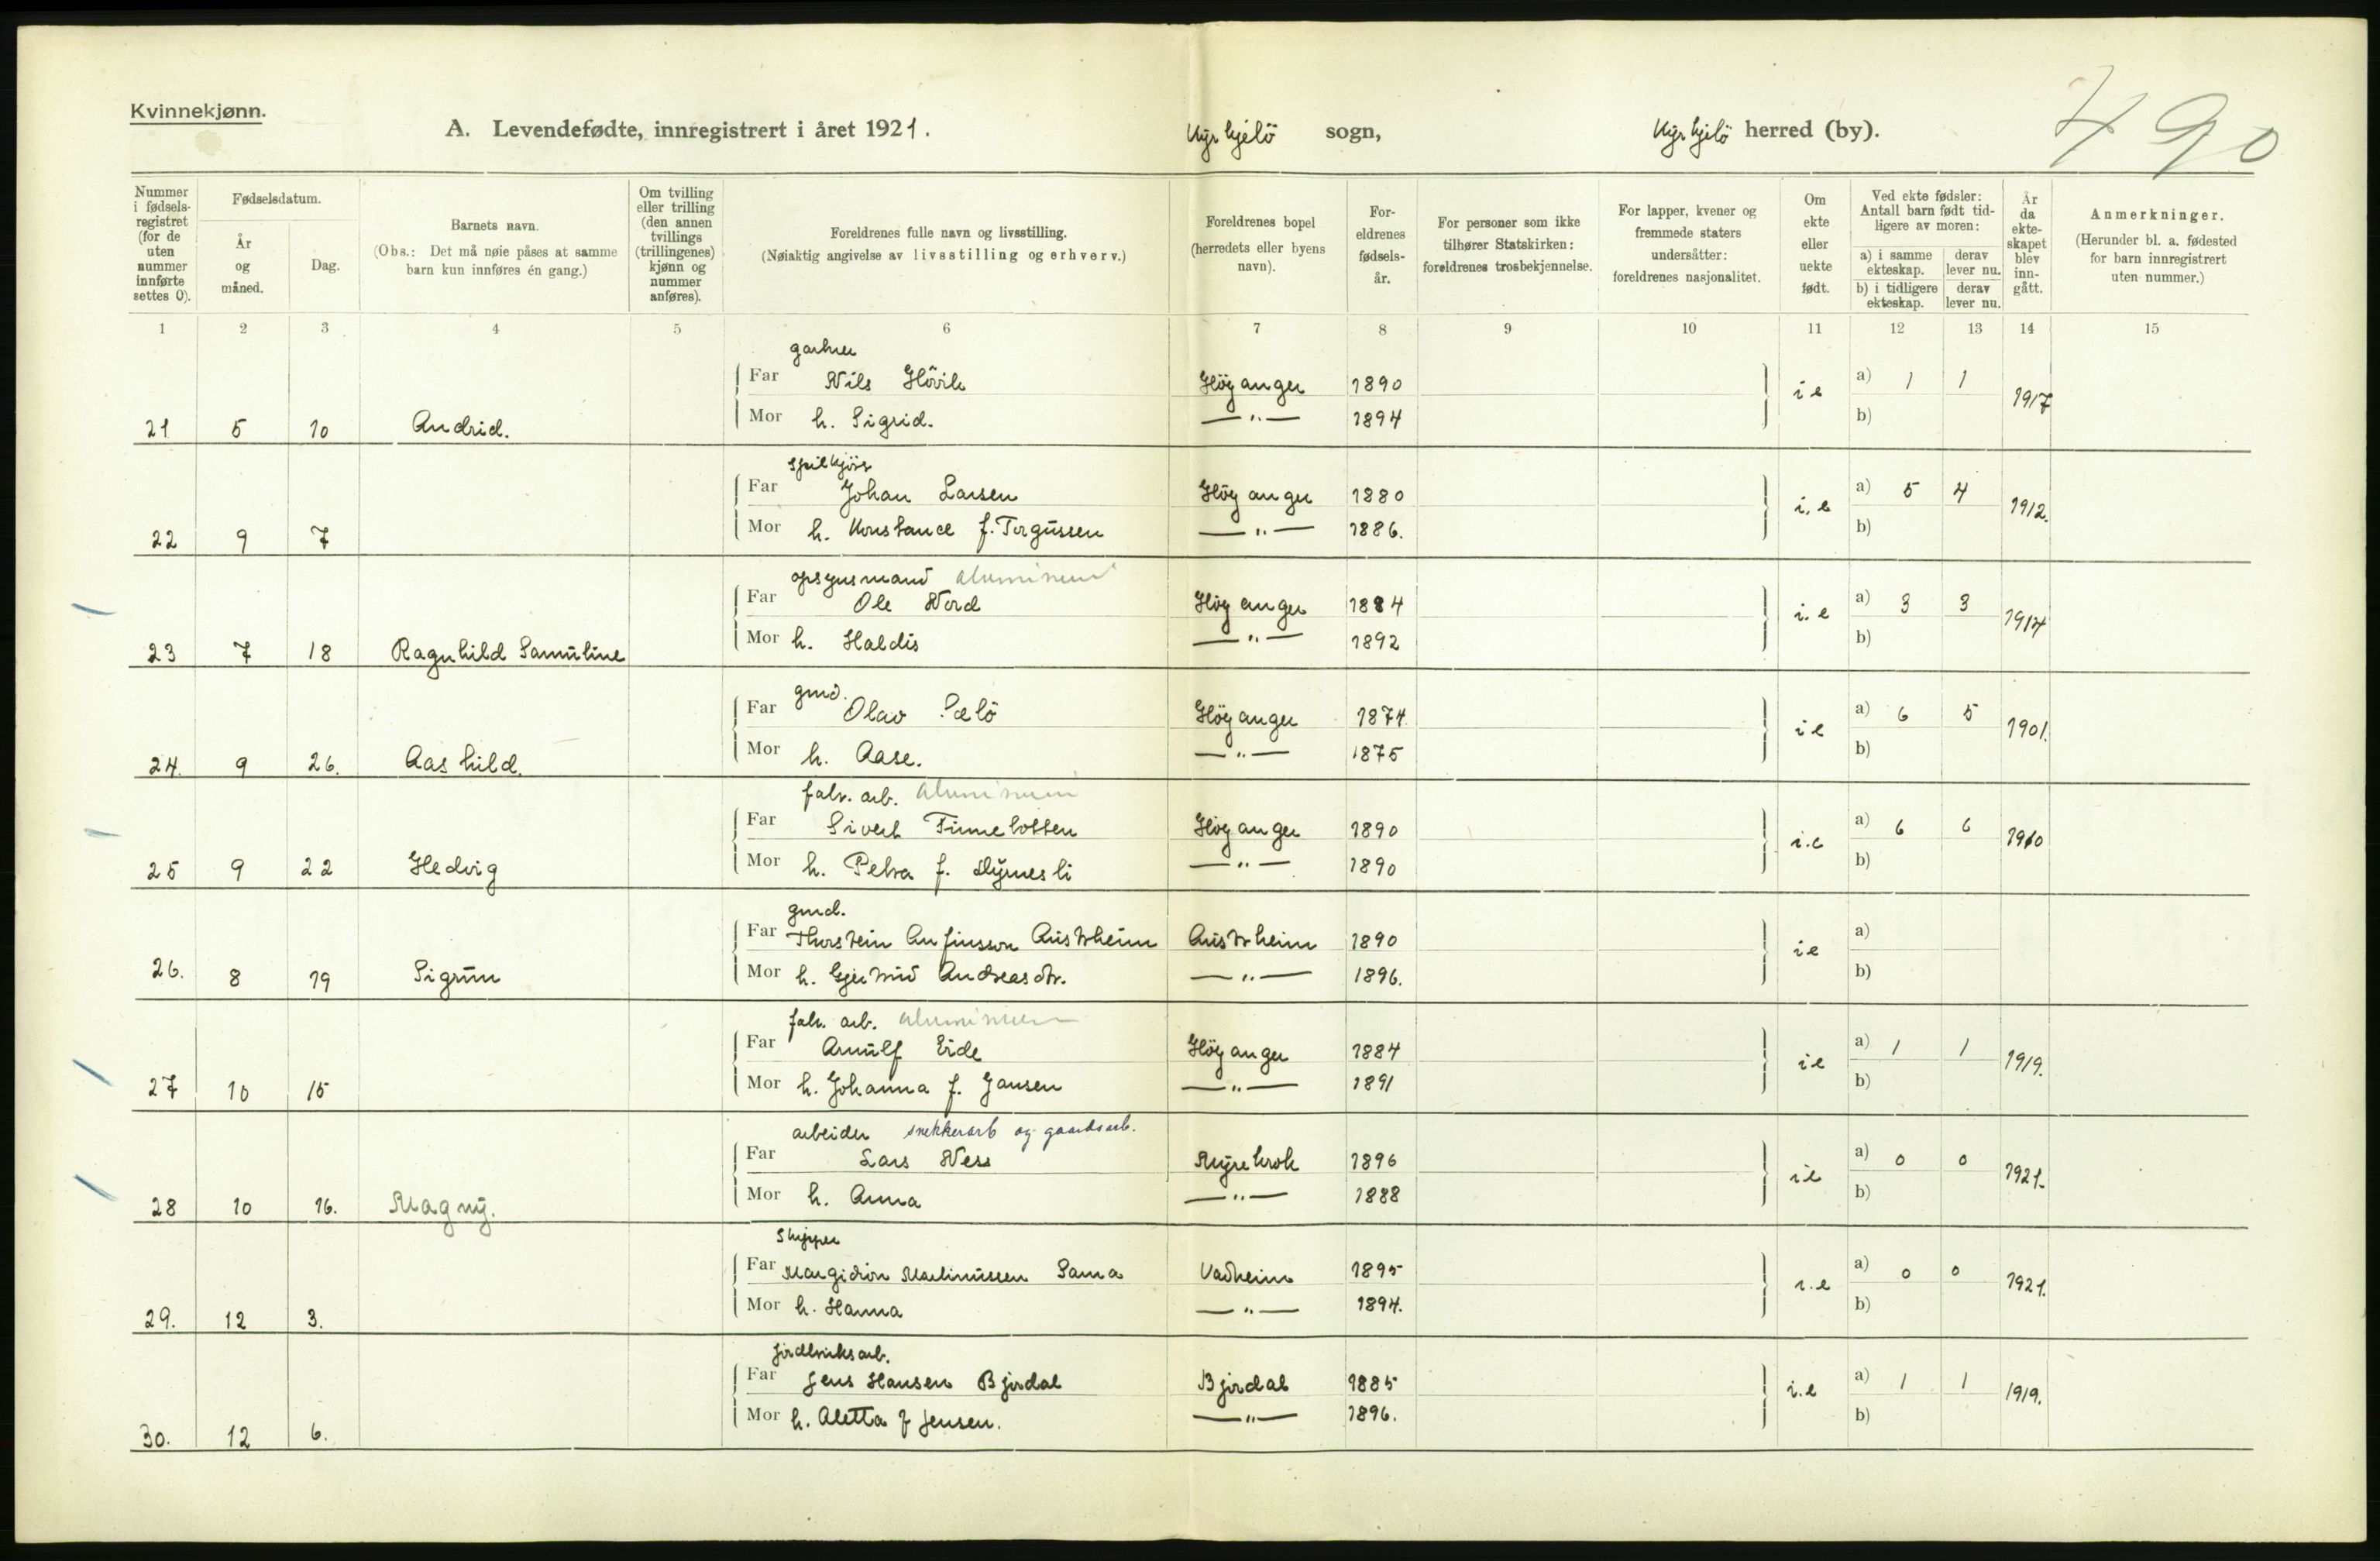 Kvinnekjønn.
A. Levendefødte, innregistrert i året 1921.
Kyrkjebö sogn,
Kyrkjebö herred (by).
490
Nummer i fødsels-registret (for de uten nummer innførte settes 0).
Fødselsdatum.
År og måned.
Dag.
Barnets navn.
(Obs.: Det må nøie påses at samme barn kun innføres én gang.)
Om tvilling eller trilling (den annen tvillings (trillingenes) kjønn og nummer anføres).
Foreldrenes fulle navn og livsstilling.
(Nøiaktig angivelse av livsstilling og erhverv.)
Foreldrenes bopel (herredets eller byens navn).
For-eldrenes fødsels-år.
For personer som ikke tilhører Statskirken: foreldrenes trosbekjennelse.
For lapper, kvener og fremmede staters undersåtter: foreldrenes nasjonalitet.
Om ekte eller uekte født.
Ved ekte fødsler: Antall barn født tid-ligere av moren:
a) i samme ekteskap. derav lever nu.
b) i tidligere ekteskap. derav lever nu.
År da ekte-skapet blev inn-gått.
Anmerkninger.
(Herunder bl. a. fødested for barn innregistrert uten nummer.)
1 2 3 4 5 6 7 8 9 10 11 12 13 14 15
gartner
Far Nils Hövik Höyanger 1890 i e a) 1 1 1917
21 5 10 Andrid. Mor h. Sigrid. —"— 1894 b)
Far Johan Larsen Höyanger 1880 i. e a) 5 4 1912.
22 9 7 Mor h. Konstance f. Torgussen —"— 1886. b)
opsynsmand aluminium
Far Ole Nord Höyanger 1884 i. e a) 3 3 1914
23 7 18 Ragnhild Samuline Mor h. Haldis —"— 1892 b)
gmd.
Far Olav Sælö Höyanger 1874 i e a) 6 5 1901.
24. 9 26. Aashild. Mor h. Aase. —"— 1875 b)
fabr. arb. aluminium
Far Sivert Höyanger 1890 i. e a) 6 6 1910
25 9 22 Hedvig Mor h. Petra f. —"— 1890 b)
gmd.
Far Thorstein Anfinsson Austrheim Austrheim 1890 i e a)
26. 8 19 Sigrun Mor h. Gjertrud Andreasdtr. —"— 1896. b)
fabr. arb. aluminium
Far Arnulf Eide Höyanger 1884 i e a) 1 1 1919.
27 10 15 Mor h. Johanna f. Jansen —"— 1891 b)
arbeider snekkerarb og gaardsarb.
Far Lars Ness Myrekrok 1896 i e a) 0 0 1921.
28 10 16. Magny. Mor h. Anna —"— 1888 b)
Skipper
Far Martinussen Sama Vadheim 1895 i. e a) 0 0 1921.
29. 12 3. Mor h. Hanna —"— 1894. b)
jordbruksarb.
Far Jens Hansen Bjordal Bjordal 1885 i. e a) 1 1 1919.
30. 12 6. Mor h. Aletta f Jensen. —"— 1896. b)